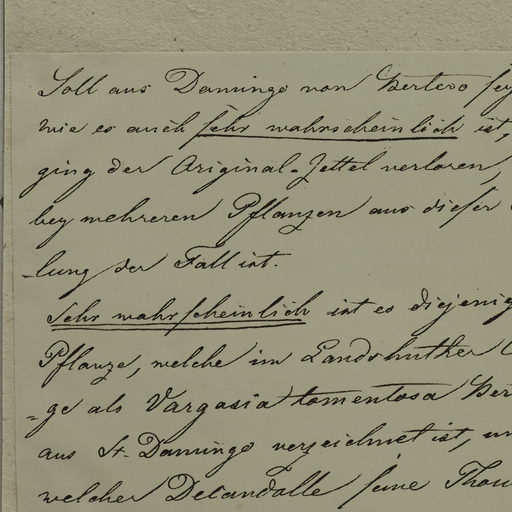 Soll aus Domingo von Bertero sey
wie es auch sehr wahrscheinlich ist,
ging der Original-Zettel verloren,
bey mehreren Pflanzen aus dieser
-lung der Fall ist.
Sehr wahrscheinlich ist es diejenig
Pflanze, welche im Landshuther
=ge als Vargasia tomentosa Ber
aus St. Domingo verzeichnet ist, un
welcher Decandolle seine Thou